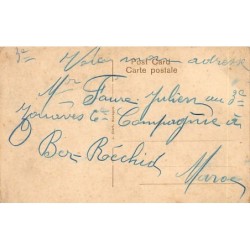 3e Voici mon adresse
Post Card
Carte postale
Mr Faure Julien au 3e
Zouaves 6e Compagnie à
Ber-Réchid
Maroc